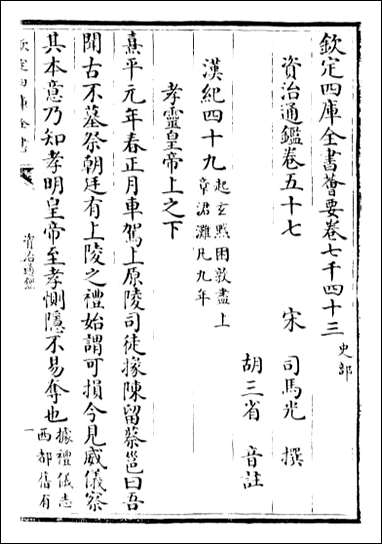 欽定四庫全書薈要卷七千四十三 史部
資治通鑑卷五十七
宋 司馬光 撰
胡三省 音註
漢紀四十九 起玄黓困敦盡上
章涒灘凡九年
孝靈皇帝上之下
熹平元年春正月車駕上原陵司徒掾陳留蔡邕曰吾
聞古不墓祭朝廷有上陵之禮始謂可損今見威儀察
其本意乃知孝明皇帝至孝惻隱不易奪也 據禮儀志
西都舊有
欽定四庫全書
資治通鑑
一